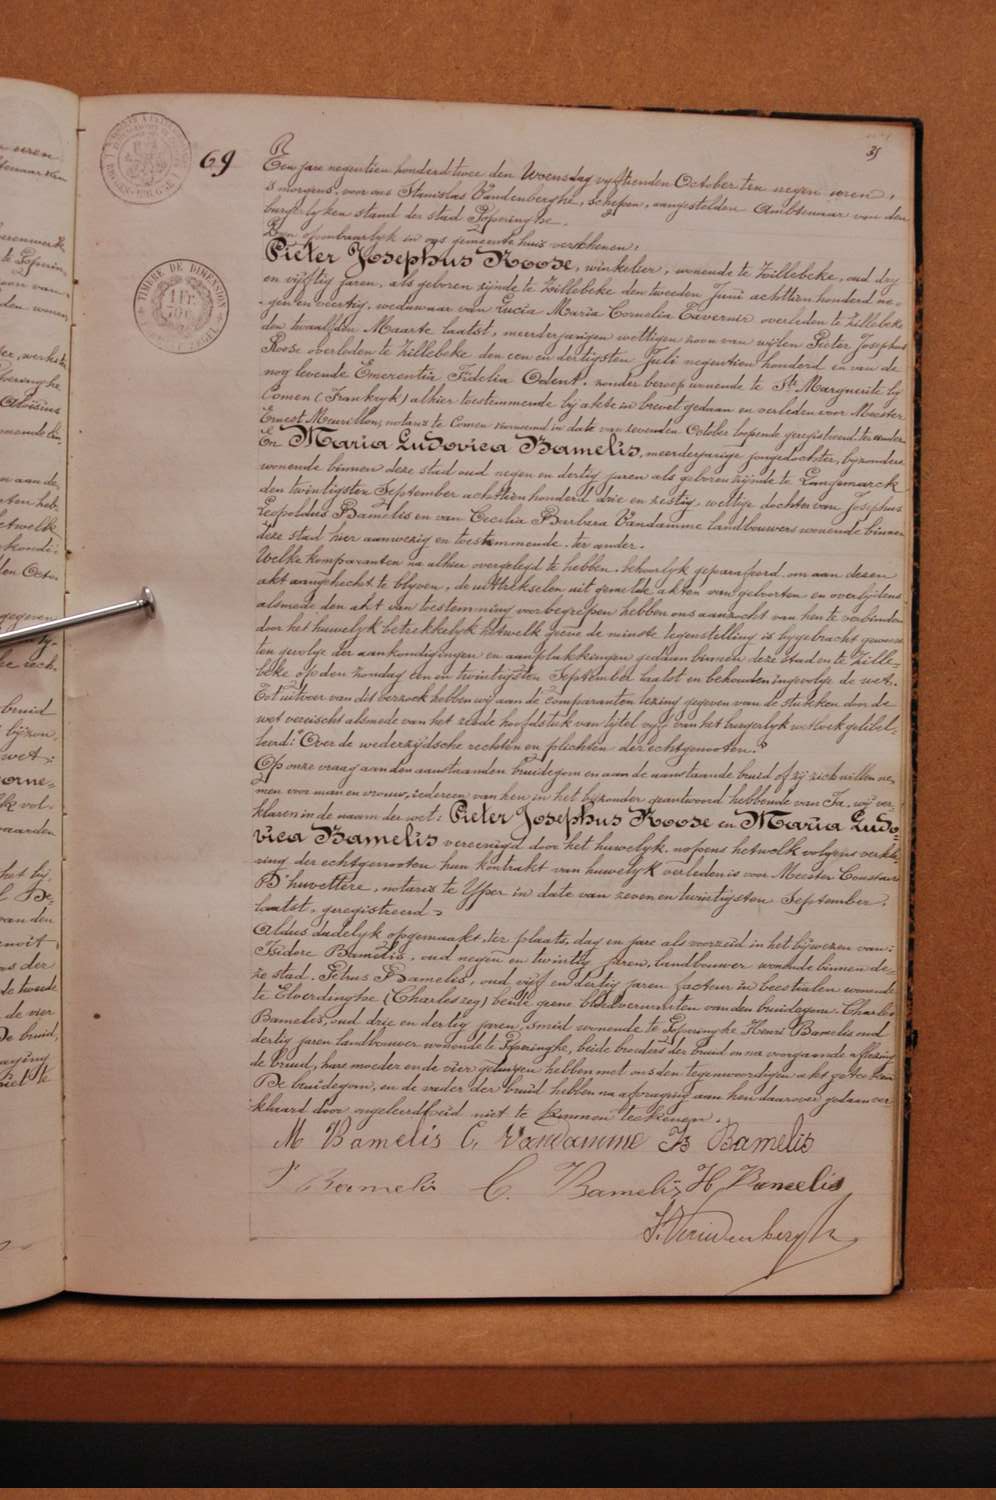 35
69
TIMBRE DE DIMENSION
1 FR.
Ten jare negentien honderd twee den Woensdag vyftienden October ten negen uren,
's morgens, voor ons Stanislas Vandenberghe, schepen, aangestelden Ambtenaar van den
burgerlyken stand der stad Poperinghe.
Zyn openbaarlyk in ons gemeentehuis verschenen,
Pieter Josephus Roose, winkelier, wonende te Zillebeke, oud dry
en vijftig jaren, als geboren zijnde te Zillebeke den tweeden Juni achttien honderd ne-
gen en veertig, weduwaar van Lucia Maria Cornelia Tavernir overleden te Zillebeke
den twaalfden Maarte laatst, meerderjarigen wettigen zoon van wijlen Pieter Josephus
Roose overleden te Zillebeke den een en dertigsten Juli negentien honderd en van de
nog levende Emerentia Fidelia Odent, zonder beroep wonende te Ste Marguerite by
Comen (Frankryk) alhier toestemmende by akte in brevet gedaan en verleden voor Meester
Ernest Meurillon, notaris te Comen voornoemd in date van zevenden October loopende geregistreerd, ter eender
En Maria Ludovica Bamelis, meerderjarige jongedochter, byzondere
wonende binnen deze stad oud negen en dertig jaren als geboren zijnde te Langemarck
den twintigsten September achttien honderd drie en zestig, wettige dochter van Josephus
Leopoldus Bamelis en van Cecilia Barbara Vandamme landbouwers wonende binnen
deze stad hier aanwezig en toestemmende, ter ander.
Welke komparanten na alhier overgelegd te hebben, behoorlyk geparafeerd, om aan dezen
akt aangehecht te blyven, de uittrekselen uit gemelde akten van geboorten en overlydens
alsmede den akt van toestemming voorbegrepen hebben ons aanzocht van hen te verbinden
door het huwelyk betrekkelyk hetwelk geene de minste tegenstelling is bygebracht geweest
ten gevolge der aankondigingen en aanplakkingen gedaan binnen deze stad en te Zille-
beke op den zondag een en twintigsten September laatst en behouden ingevolge de wet.
Tot uitvoer van dit verzoek hebben wij aan de comparanten lezing gegeven van de stukken door de
wet vereischt alsmede van het zesde hoofdstuk van tytel vyf van het burgerlyk wetboek getitel-
leerd: "Over de wederzijdsche rechten en plichten der echtgenooten."
Op onze vraag aan den aanstaanden bruidegom en aan de aanstaande bruid of zij zich willen ne-
men voor man en vrouw, iedereen van hen in het byzonder geantwoord hebbende van Ja, wij ver-
klaren in de naam der wet: Pieter Josephus Roose en Maria Ludo-
vica Bamelis vereenigd door het huwelyk, nopens hetwelk volgens verkla-
ring der echtgenooten hun kontrakt van huwelyk verleden is voor Meester Constant
D'huvettere, notaris te Yper in date van zeven en twintigsten September,
laatst, geregistreerd.
Aldus dadelyk opgemaakt, ter plaats, dag en jare als voorzeid in het bijwezen van:
Isidore Bamelis, oud negen en twintig jaren, landbouwer wonende binnen de-
ze stad, Petrus Bamelis, oud vijf en dertig jaren facteur in beestialen wonende
te Elverdinghe (Charles zeg) beide geene bloedverwanten van den bruidegom, Charles
Bamelis, oud drie en dertig jaren, smid wonende te Poperinghe Henri Bamelis oud
dertig jaren landbouwer wonende te Poperinghe, beide broeders der bruid en na voorgaande aflezing
de bruid, hare moeder en de vier getuigen hebben met ons den tegenwoordigen akt geteekend
De bruidegom, en de vader der bruid hebben na afvraging aan hen daarover gedaan ver-
klaard door ongeleerdheid niet te kunnen teekenen.
M Bamelis C. Vandamme Is Bamelis
P Bamelis C. Bamelis H Bamelis
S. Vandenberghe